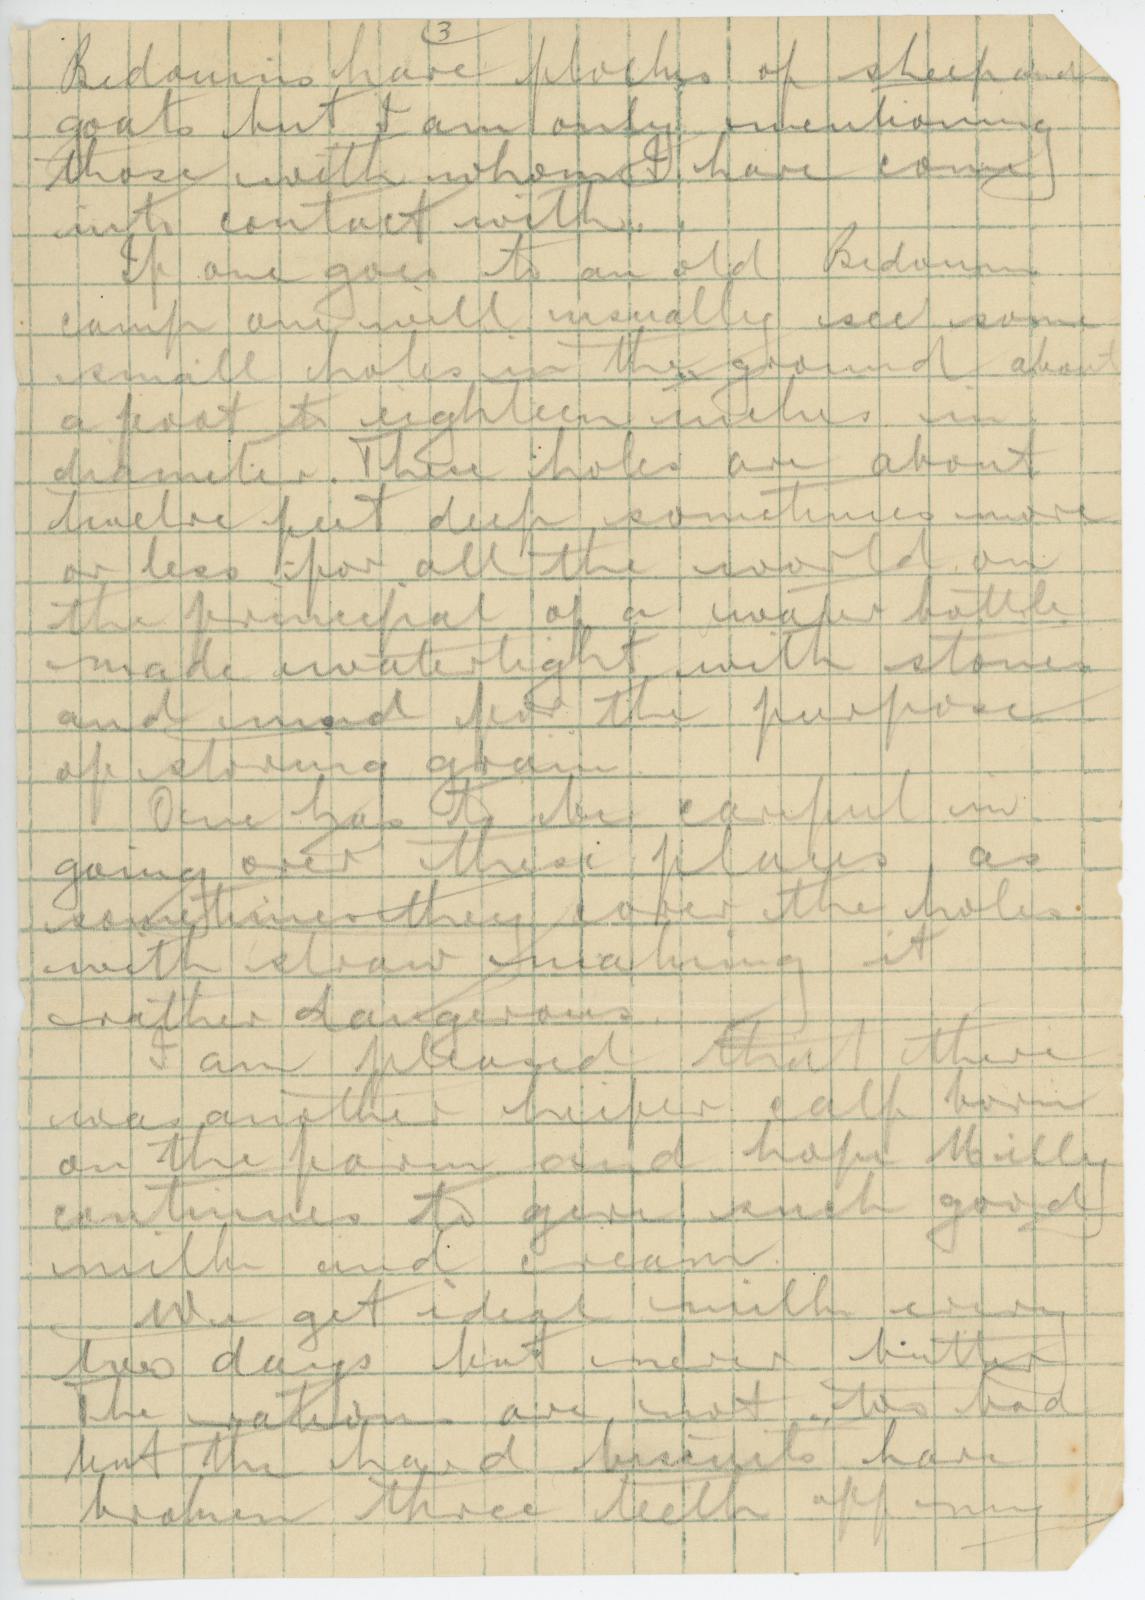 3
Bedouins have flocks of sheep and
goats but I am only mentioning
those with whom I have come
into contact with.
If one goes to an old Bedouin
camp one will usually see some
small holes in the ground about
a foot to eighteen inches in
diameter. These holes are about
twelve feet deep sometimes more
or less for all the world on
the principal of a water bottle
made watertight with stones
and mud for the purpose
of storing grain
One has to be careful in
going over these places as
sometimes they cover the holes
with straw making it
rather dangerous.
I am pleased that there
was another heifer calf born
on the farm and hope Milly
continues to give such good
milk and cream.
We get ideal milk every
two days but never butter
The rations are not too bad
but the hard biscuits have
broken three teeth off my